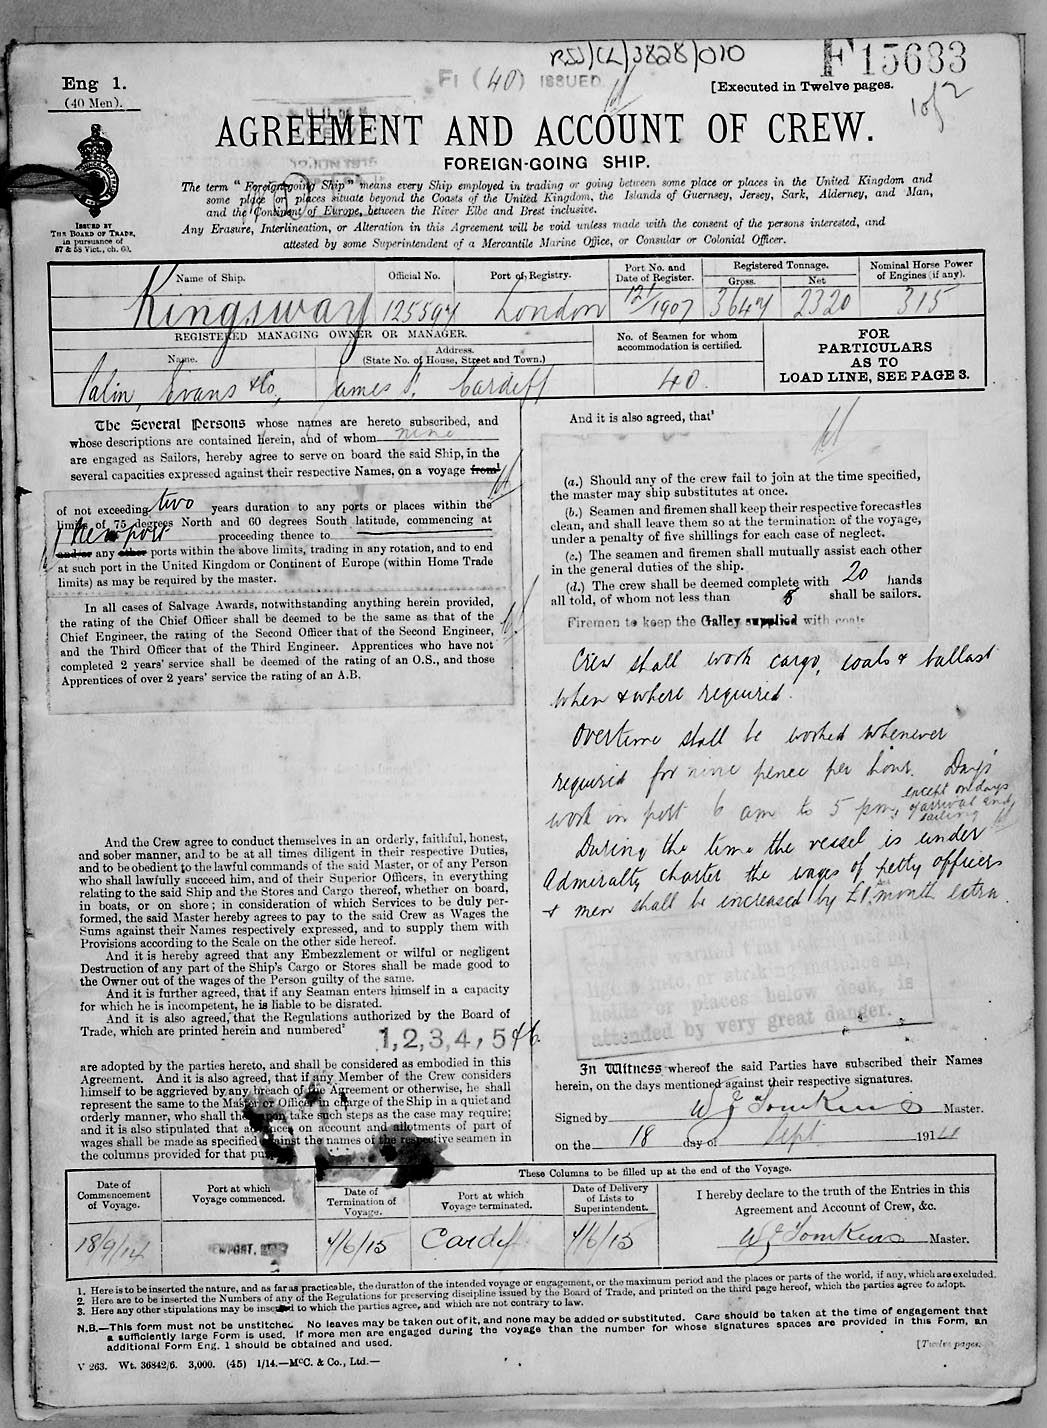 RSS/CL/3828/010
F15683
Eng 1.
(40 Men).
F1 (40) ISSUED
[Executed in Twelve pages.
1 of 2
AGREEMENT AND ACCOUNT OF CREW.
FOREIGN-GOING SHIP.
ISSUED BY
THE BOARD OF TRADE,
in pursuance of
57 & 58 Vict., ch. 60.
The term "Foreign-going Ship" means every Ship employed in trading or going between some place or places in the United Kingdom and
some place or places situate beyond the Coasts of the United Kingdom, the Islands of Guernsey, Jersey, Sark, Alderney, and Man,
and the Continent of Europe, between the River Elbe and Brest inclusive.
Any Erasure, Interlineation, or Alteration in this Agreement will be void unless made with the consent of the persons interested, and
attested by some Superintendent of a Mercantile Marine Office, or Consular or Colonial Officer.
Name of Ship. Official No. Port of Registry. Port No. and Date of Register. Registered Tonnage. Gross. Net Nominal Horse Power of Engines (if any).
Kingsway 125594 London 121/1907 3647 2320 315
REGISTERED MANAGING OWNER OR MANAGER.
Name. Address. (State No. of House, Street and Town.)
No. of Seamen for whom accommodation is certified.
FOR
PARTICULARS
AS TO
LOAD LINE, SEE PAGE 3.
Palin, Evans & Co., James S. Cardiff 40.
The Several Persons whose names are hereto subscribed, and
whose descriptions are contained herein, and of whom nine
are engaged as Sailors, hereby agree to serve on board the said Ship, in the
several capacities expressed against their respective Names, on a voyage from
of not exceeding two years duration to any ports or places within the
limits of 75 degrees North and 60 degrees South latitude, commencing at
Newport proceeding thence to
and/or any other ports within the above limits, trading in any rotation, and to end
at such port in the United Kingdom or Continent of Europe (within Home Trade
limits) as may be required by the master.
In all cases of Salvage Awards, notwithstanding anything herein provided,
the rating of the Chief Officer shall be deemed to be the same as that of the
Chief Engineer, the rating of the Second Officer that of the Second Engineer,
and the Third Officer that of the Third Engineer. Apprentices who have not
completed 2 years' service shall be deemed of the rating of an O.S., and those
Apprentices of over 2 years' service the rating of an A.B.
And the Crew agree to conduct themselves in an orderly, faithful, honest,
and sober manner, and to be at all times diligent in their respective Duties,
and to be obedient to the lawful commands of the said Master, or of any Person
who shall lawfully succeed him, and of their Superior Officers, in everything
relating to the said Ship and the Stores and Cargo thereof, whether on board,
in boats, or on shore; in consideration of which Services to be duly per-
formed, the said Master hereby agrees to pay to the said Crew as Wages the
Sums against their Names respectively expressed, and to supply them with
Provisions according to the Scale on the other side hereof.
And it is hereby agreed that any Embezzlement or wilful or negligent
Destruction of any part of the Ship's Cargo or Stores shall be made good to
the Owner out of the wages of the Person guilty of the same.
And it is further agreed, that if any Seaman enters himself in a capacity
for which he is incompetent, he is liable to be disrated.
And it is also agreed, that the Regulations authorized by the Board of
Trade, which are printed herein and numbered²
1,2,3,4, 5 & 6.
are adopted by the parties hereto, and shall be considered as embodied in this
Agreement. And it is also agreed, that if any Member of the Crew considers
himself to be aggrieved by any breach of the Agreement or otherwise, he shall
represent the same to the Master or Officer in charge of the Ship in a quiet and
orderly manner, who shall thereupon take such steps as the case may require;
and it is also stipulated that advances on account and allotments of part of
wages shall be made as specified against the names of the respective seamen in
the columns provided for that purpose
And it is also agreed, that³
(a.) Should any of the crew fail to join at the time specified,
the master may ship substitutes at once.
(b.) Seamen and firemen shall keep their respective forecastles
clean, and shall leave them so at the termination of the voyage,
under a penalty of five shillings for each case of neglect.
(c.) The seamen and firemen shall mutually assist each other
in the general duties of the ship.
(d.) The crew shall be deemed complete with 20 hands
all told, of whom not less than 8 shall be sailors.
Firemen to keep the Galley supplied with coals
Crew shall work cargo, coals & ballast
when & where required.
Overtime shall be worked whenever
required for nine pence per hour. Days
work in port 6 am to 5 pm, except on days
of arrival and
sailing
During the time the vessel is under
Admiralty charter the wages of petty officers
& men shall be increased by £1 month extra.
are warned that
lights into, or striking matches in,
holds or places below deck, is
attended by very great danger.
In Witness whereof the said Parties have subscribed their Names
herein, on the days mentioned against their respective signatures.
Signed by W J Tomkins Master.
on the 18 day of Sept 1914
These Columns to be filled up at the end of the Voyage.
Date of Commencement of Voyage. Port at which Voyage commenced. Date of Termination of Voyage. Port at which Voyage terminated. Date of Delivery of Lists to Superintendent.
I hereby declare to the truth of the Entries in this
Agreement and Account of Crew, &c.
18/9/14 NEWPORT, 4/6/15 Cardiff 4/6/15 W J Tomkins Master.
1. Here is to be inserted the nature, and as far as practicable, the duration of the intended voyage or engagement, or the maximum period and the places or parts of the world, if any, which are excluded.
2. Here are to be inserted the Numbers of any of the Regulations for preserving discipline issued by the Board of Trade, and printed on the third page hereof, which the parties agree to adopt.
3. Here any other stipulations may be inserted to which the parties agree, and which are not contrary to law.
N.B.—This form must not be unstitched. No leaves may be taken out of it, and none may be added or substituted. Care should be taken at the time of engagement that
a sufficiently large Form is used. If more men are engaged during the voyage than the number for whose signatures spaces are provided in this Form, an
additional Form Eng. 1 should be obtained and used.
[Twelve pages.
V 263. Wt. 36842/6. 3,000. (45) 1/14.—McC. & Co., Ltd.—